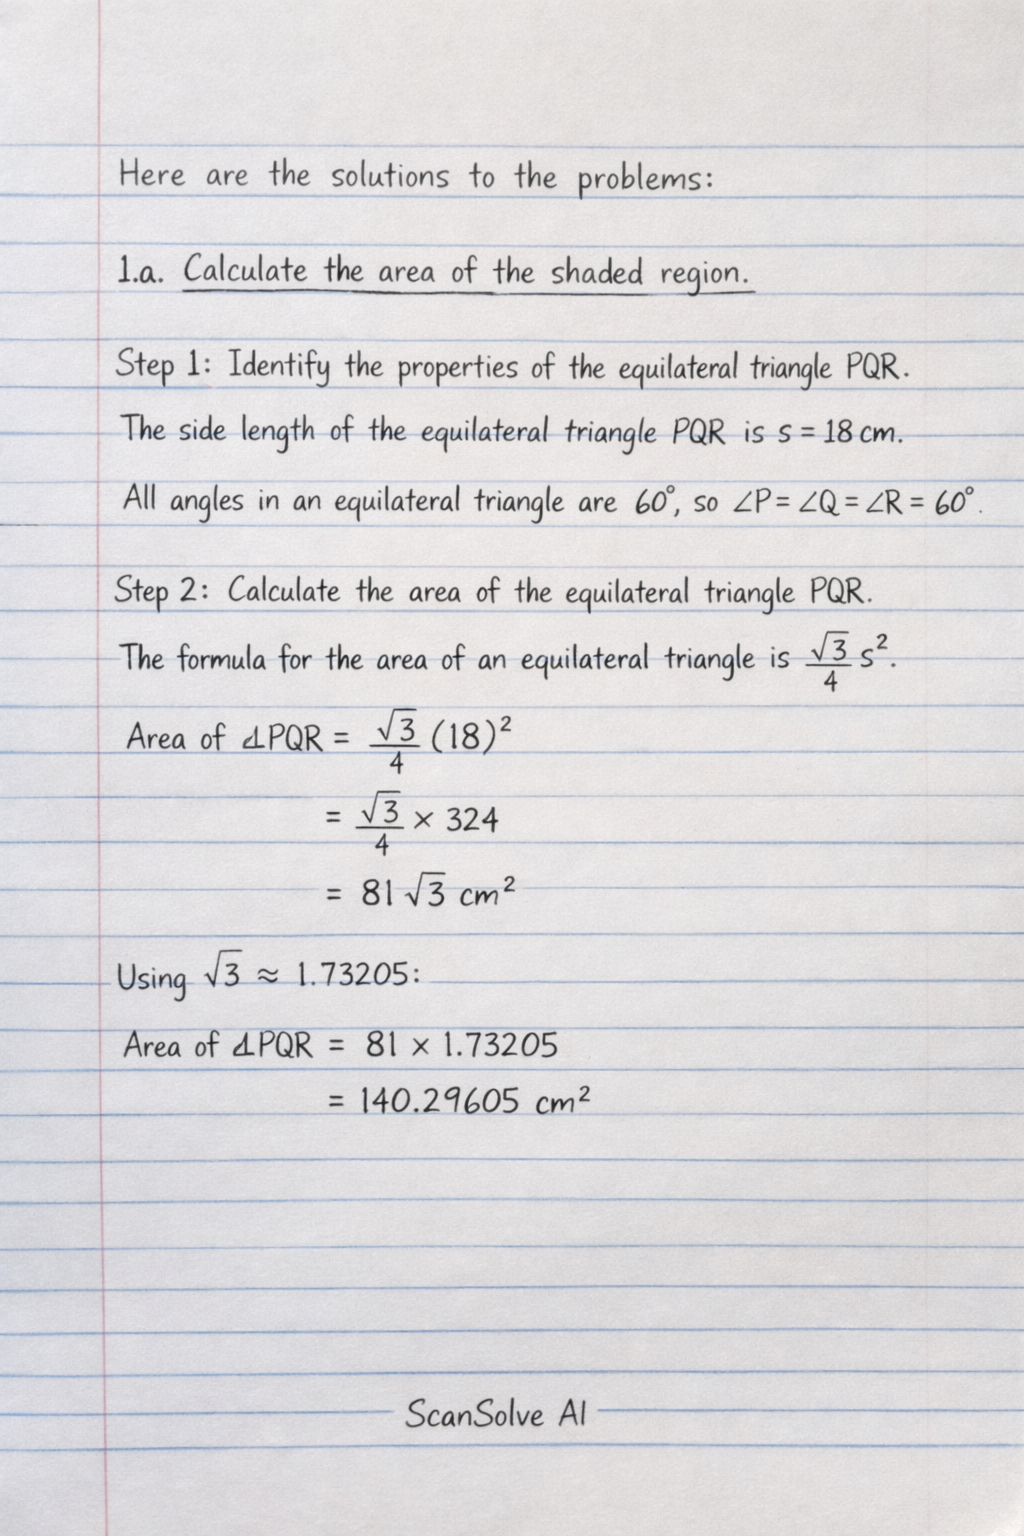 Here are the solutions to the problems:
1.a. Calculate the area of the shaded region.
Step 1: Identify the properties of the equilateral triangle PQR.
The side length of the equilateral triangle PQR is s = 18 cm.
All angles in an equilateral triangle are 60°, so ∠P = ∠Q = ∠R = 60°.
Step 2: Calculate the area of the equilateral triangle PQR.
The formula for the area of an equilateral triangle is √3/4 s².
Area of ⊿PQR = √3/4 (18)²
= √3/4 × 324
= 81 √3 cm²
Using √3 ≈ 1.73205:
Area of ⊿PQR = 81 × 1.73205
= 140.29605 cm²
ScanSolve AI